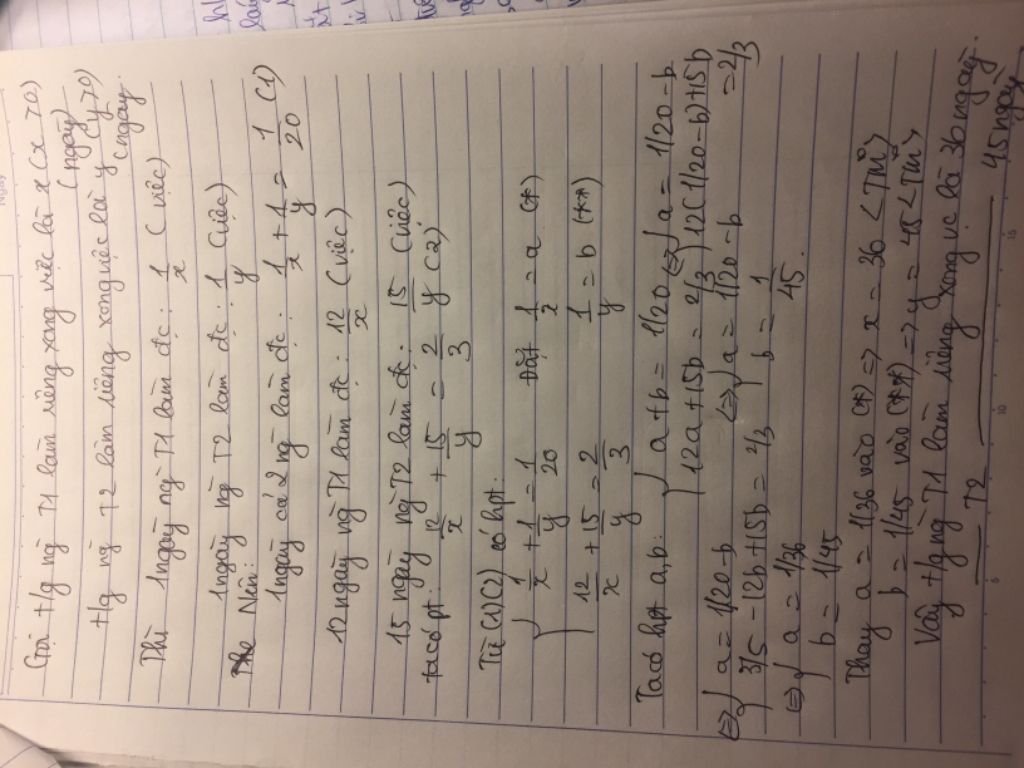 Gọi +tg ng T1 làm riêng xong việc là x (x > 0)
(ngày)
+tg ng T2 làm riêng xong việc là y (y > 0)
(ngày)
Thì 1 ngày ng T1 làm đc: 1/x (việc)
1 ngày ng T2 làm đc: 1/y (việc)
Nên:
1 ngày cả 2 ng làm đc: 1/x + 1/y = 1/20 (1)
12 ngày ng T1 làm đc: 12/x (việc)
15 ngày ng T2 làm đc: 15/y (việc)
ta có pt: 12/x + 15/y = 2/3 (2)
Từ (1)(2) có hpt:
{ 1/x + 1/y = 1/20 Đặt 1/x = a (*)
12/x + 15/y = 2/3 1/y = b (**)
Ta có hpt a,b: { a + b = 1/20 <=> { a = 1/20 - b
12a + 15b = 2/3 12(1/20 - b) + 15b = 2/3
<=> { a = 1/20 - b <=> { a = 1/20 - b
3/5 - 12b + 15b = 2/3 b = 1/45.
<=> { a = 1/36
b = 1/45
Thay a = 1/36 vào (*) => x = 36 <TM>
b = 1/45 vào (**) => y = 45 <TM>
Vậy +tg ng T1 làm riêng xong vc là 36 ngày.
— T2 — 45 ngày